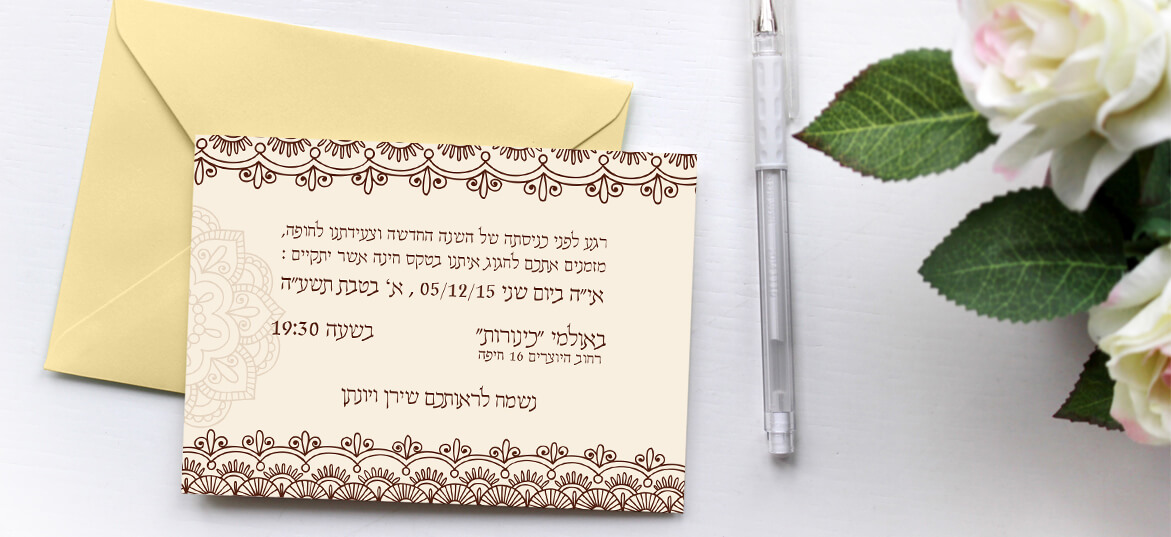 רגע לפני כניסתה של השנה החדשה וצעידתנו לחופה,
מזמנים אתכם לחגוג איתנו בטקס חינה אשר יתקיים :
אי״ה ביום שני 05/12/15 , א׳ בטבת תשע״ה
באולמי ״כינורות״ בשעה 19:30
רחוב היוצרים 16 חיפה
נשמח לראותכם שירן ויונתן